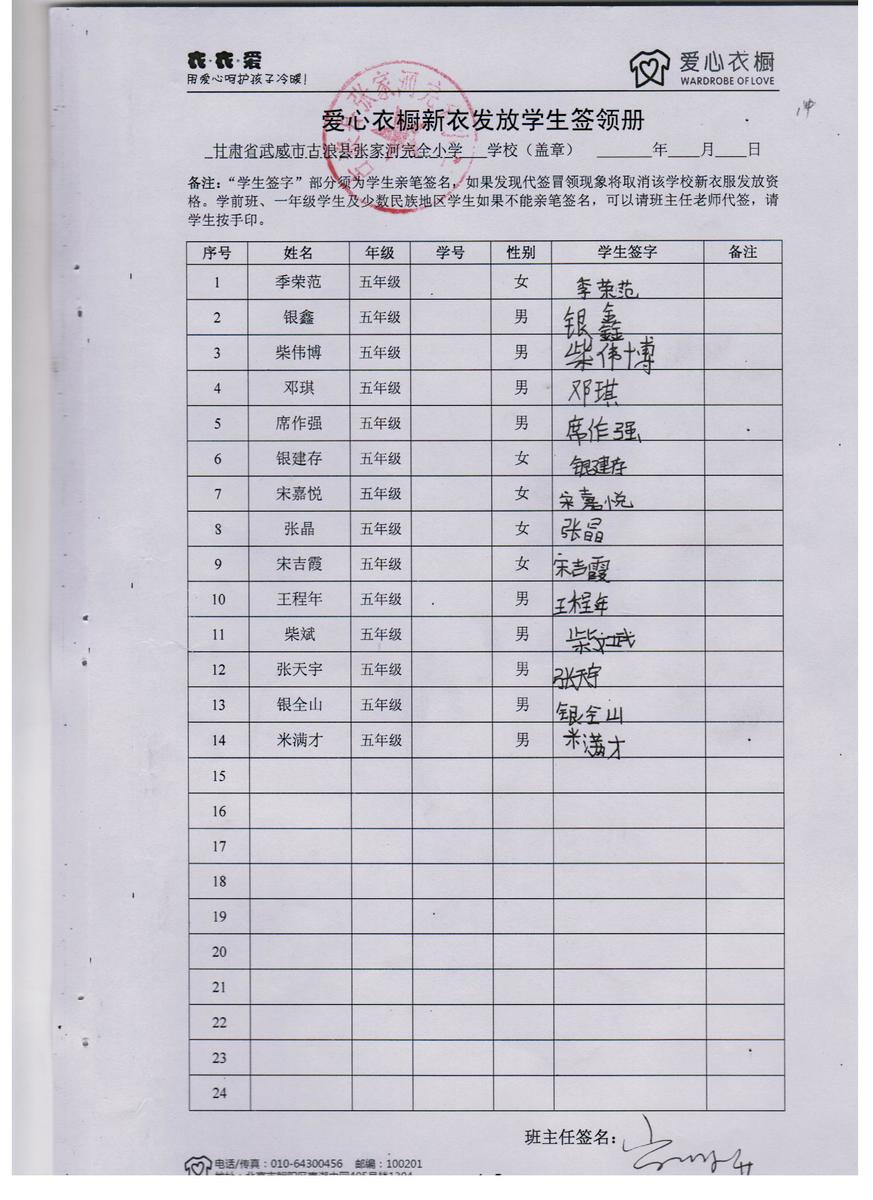 衣·衣·爱
用爱心呵护孩子冷暖!
爱心衣橱
WARDROBE OF LOVE
14
爱心衣橱新衣发放学生签领册
甘肃省武威市古浪县张家河完全小学 学校（盖章） 年 月 日
备注：“学生签字”部分须为学生亲笔签名，如果发现代签冒领现象将取消该学校新衣服发放资
格。学前班、一年级学生及少数民族地区学生如果不能亲笔签名，可以请班主任老师代签，请
学生按手印。
序号 姓名 年级 学号 性别 学生签字 备注
1 季荣范 五年级 女 季荣范
2 银鑫 五年级 男 银鑫
3 柴伟博 五年级 男 柴伟博
4 邓琪 五年级 男 邓琪
5 席作强 五年级 男 席作强
6 银建存 五年级 女 银建存
7 宋嘉悦 五年级 女 宋嘉悦
8 张晶 五年级 女 张晶
9 宋吉霞 五年级 女 宋吉霞
10 王程年 五年级 男 王程年
11 柴斌 五年级 男 柴斌
12 张天宇 五年级 男 张天宇
13 银全山 五年级 男 银全山
14 米满才 五年级 男 米满才
15
16
17
18
19
20
21
22
23
24
班主任签名：
电话/传真：010-64300456 邮编：100201